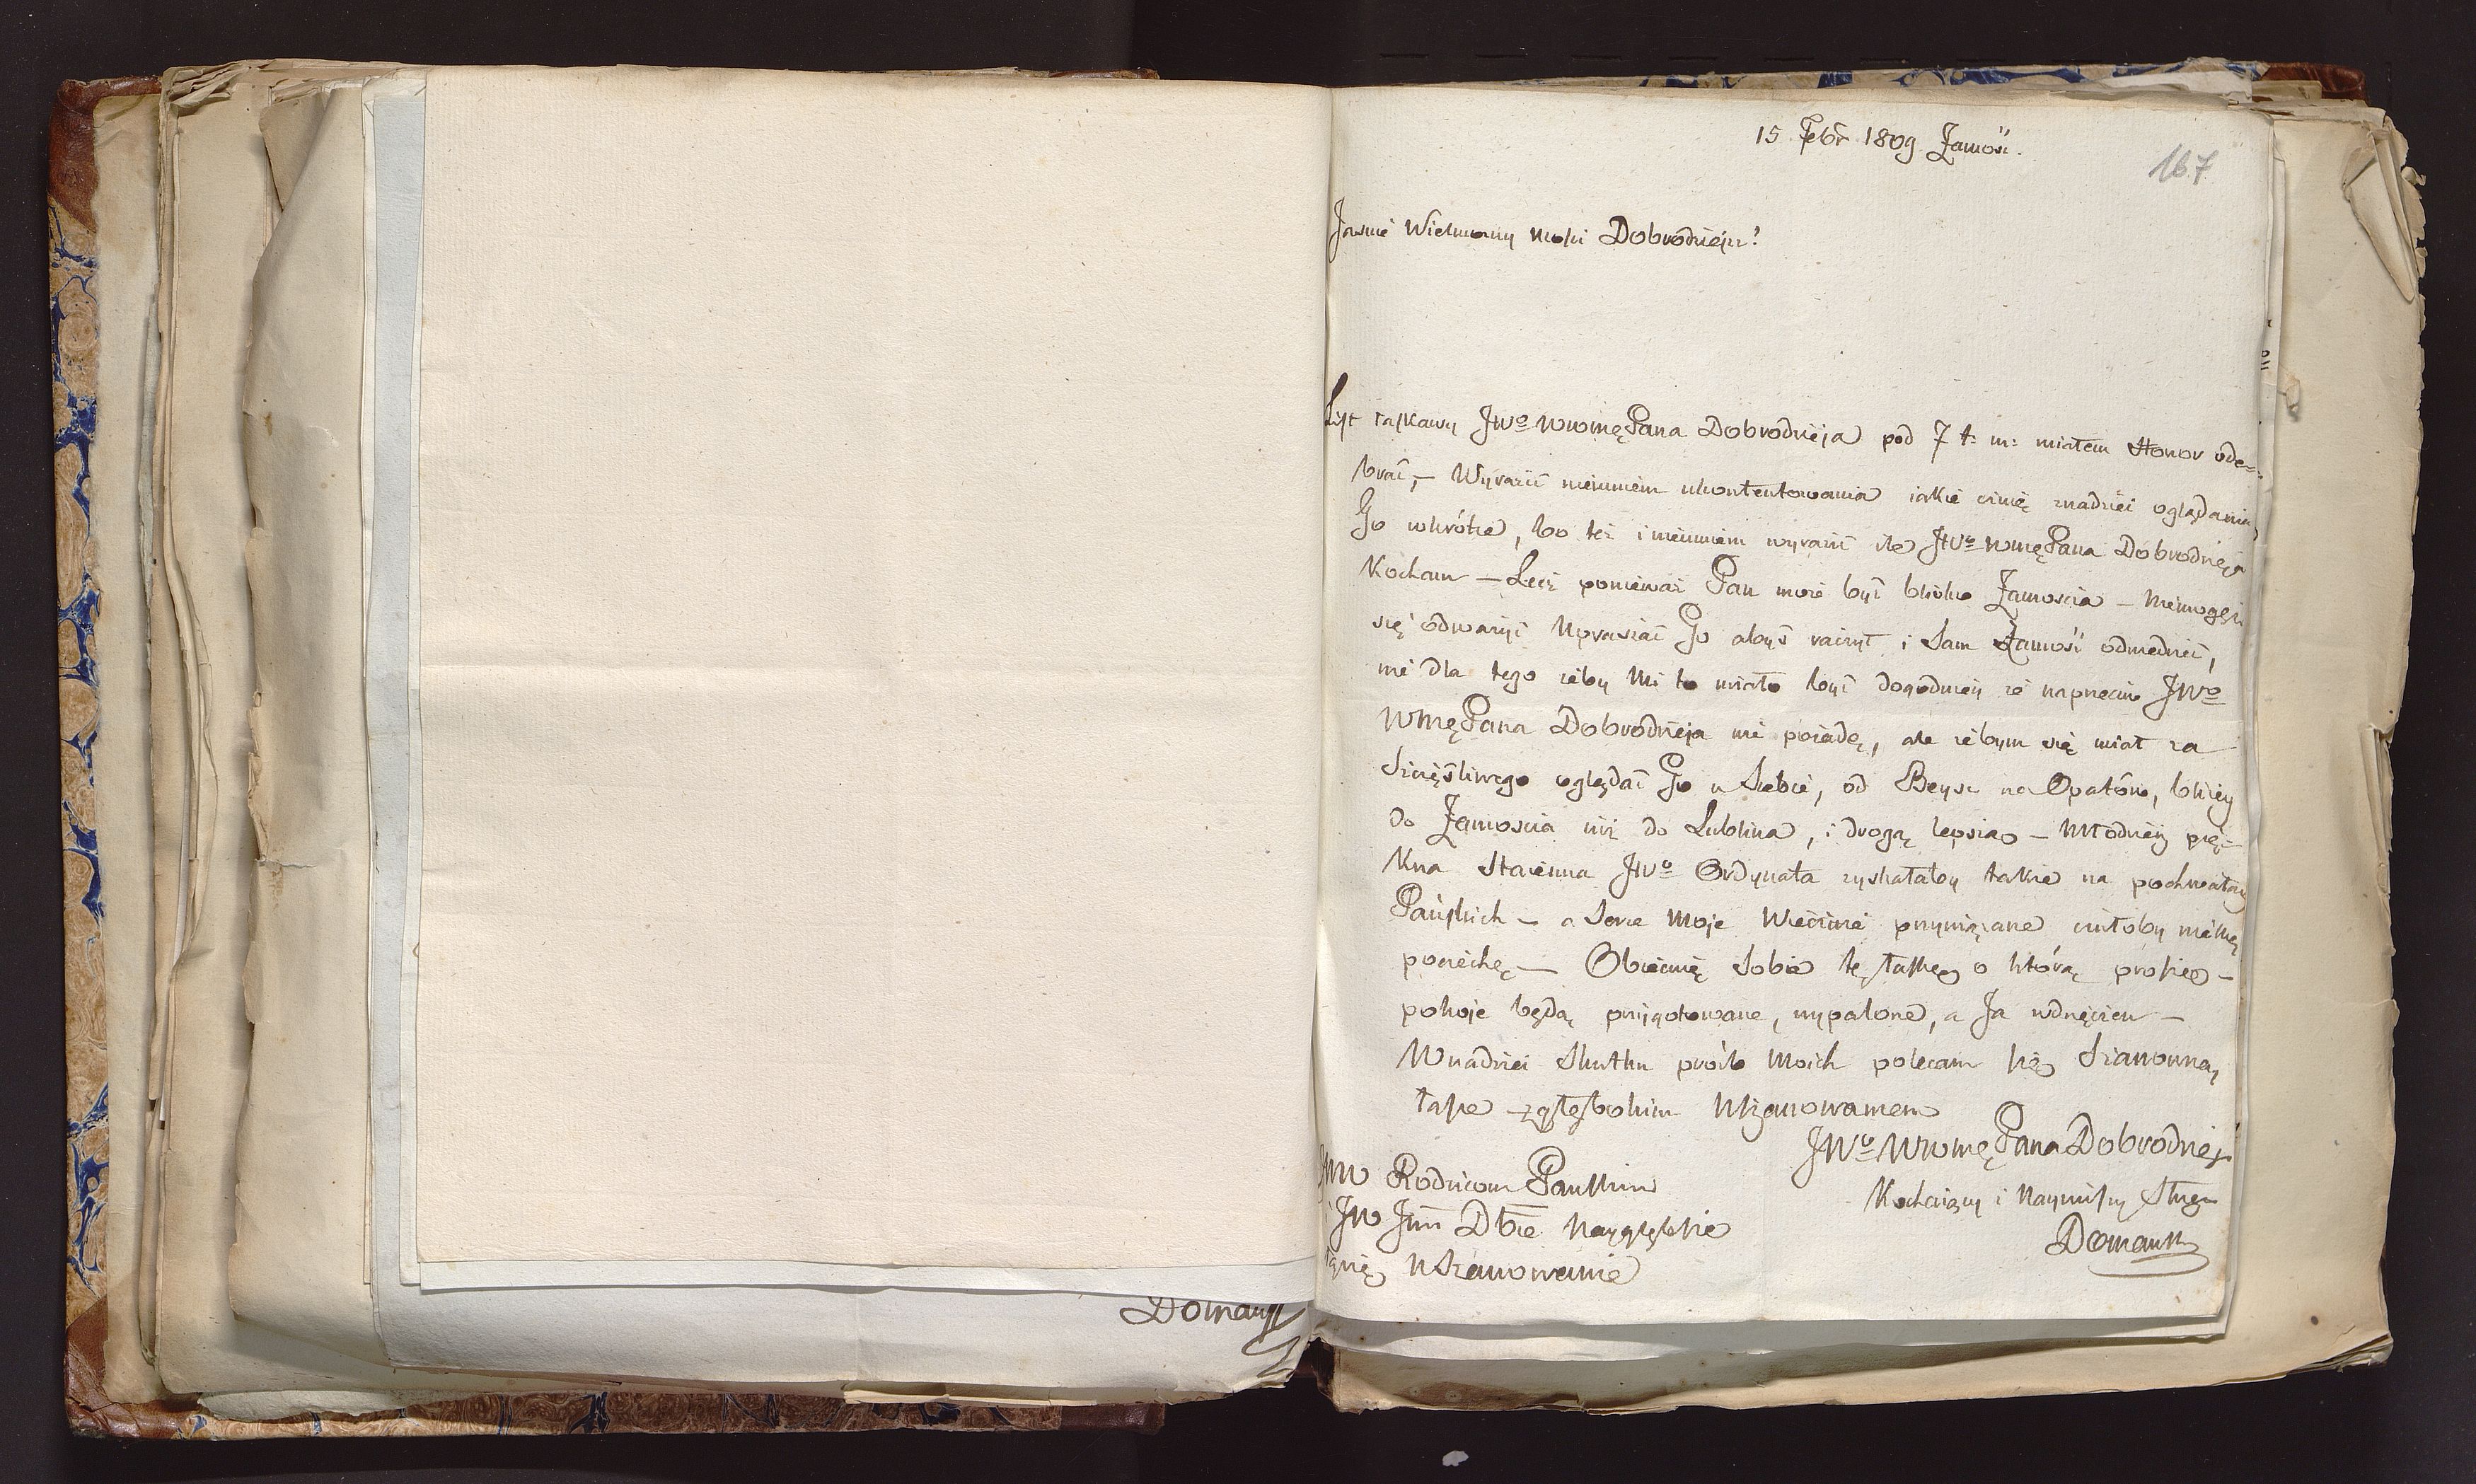 Domansk
15 Febr 1809 Zamość.
167
Jasnie Wielmożny Mości Dobrodzieju!
List łaskawy JWo WWmę Pana Dobrodzieja pod 7 t: m: miałem Honor ode=
brać, – Wyrazić nieumiem ukontentowania iakie czuię znadziei oglądania
Go wkrótce, bo też i nieumiem wyrazić ile JWo WmęPana Dobrodzieja
Kocham – Lecz ponieważ Pan może być blisko Zamościa – Niemogę
się odważyć Upraszać Go abyś raczył i Sam Zamość odwiedzić,
nie dla tego żeby Mi to miało być dogodniey że naprzeciw JWo
WmęPana Dobrodzieja nie poiadę, ale żebym się miał za
Szczęśliwego oglądać Go u Siebie, od Beysc na Opatów, bliżey
do Zamościa niż do Lublina, i drogą lepszą – Młodzież pię=
kna Staienna JWo Ordynata zyskałaby także na pochwałach
Pańskich – a Serce Moje Wiecznie przywiązane czułoby
pociechę – Obiecuię Sobie tę łaskę o którą proszę –
pokoje będą przygotowane, wypalone, a Ja wdzięczen –
W nadziei Skutku prośb Moich polecam się Szanowney
łasce zgłębokim Uszanowaniem
JWo WWmę Pana Dobrodzieja
Kochaiący i Nayniższy Sługa
Domansk
JWW Rodzicom Pańskim
i JW Jmć Dbce Nayglębsze
łączę Uszanowanie